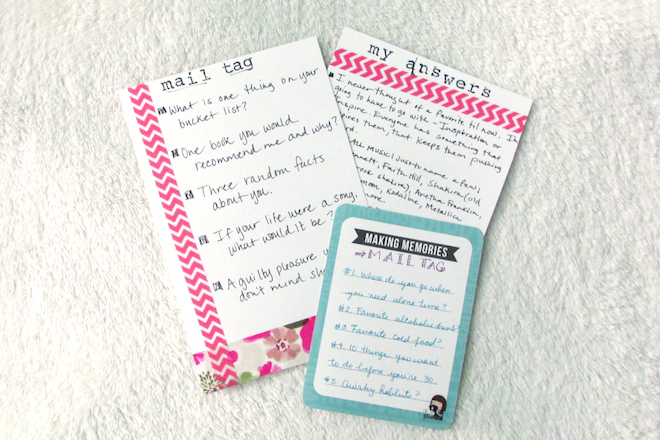 mail tag
What is one thing on your
bucket list?
One book you would
recommend me and why?
Three random facts
about you.
If your life were a song,
what would it be?
A guilty pleasure
don't mind
my answers
I never thought of a favorite til now. I
going to have to go with - Inspiration or
Inspire. Everyone has something that
them, that keeps them pushing
All Music! Just to name a few:
Faith Hill, Shakira (old
Shakira), Aretha Franklin,
Kodaline, Metallica
more.
MAKING MEMORIES
MAIL TAG
#1. Where do you go when
you need alone time?
#2. Favorite alcoholic drink?
#3. Favorite cold food?
#4. 10 things you want
to do before you're 30.
#5. Quirky habbits?